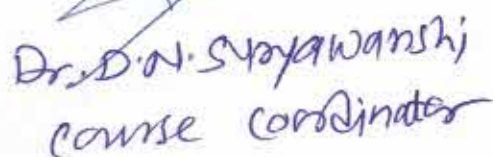 Dr. D.N. Suryawanshi
course coordinator